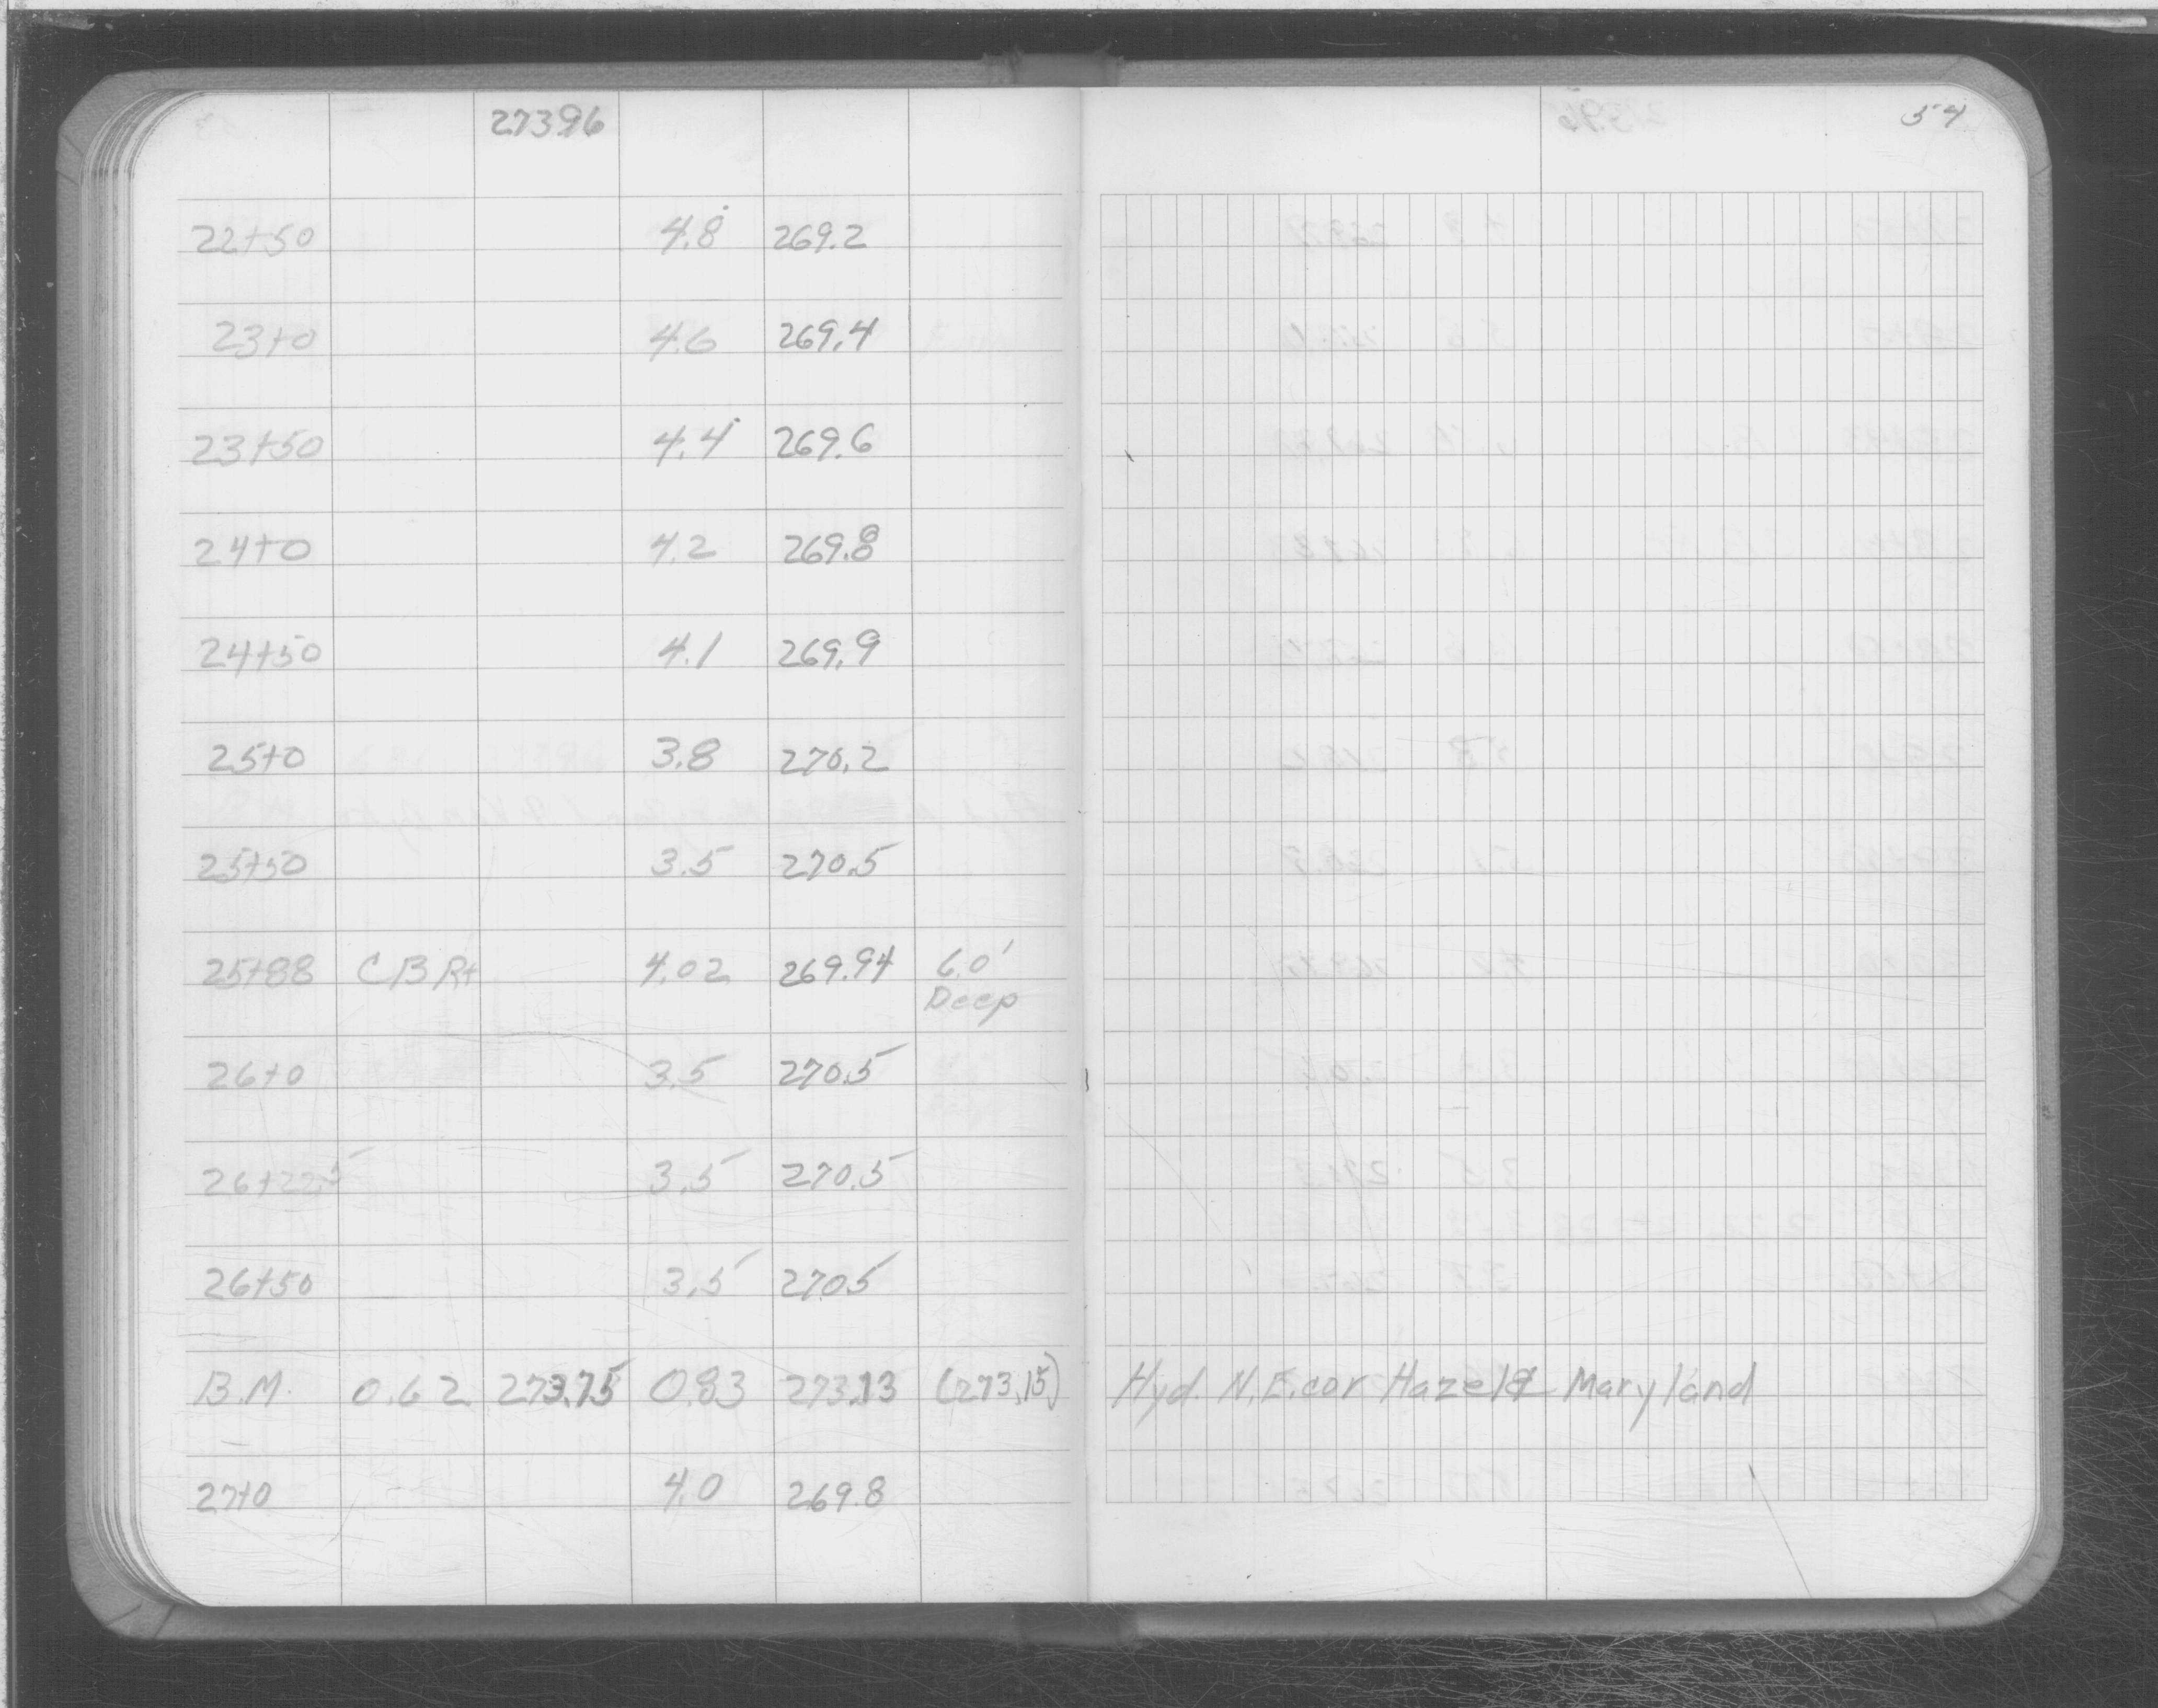 273.96
54
22+50 4.8 269.2
23+0 4.6 269.4
23+50 4.4 269.6
24+0 4.2 269.8
24+50 4.1 269.9
25+0 3.8 270.2
25+50 3.5 270.5
25+88 CB Rt 4.02 269.94 6.0'
Deep
26+0 3.5 270.5
26+22.5 3.5 270.5
26+50 3.5 270.5
B.M. 0.62 273.75 0.83 273.13 (273.15) Hyd. N.E. cor Hazel & Maryland
27+0 4.0 269.8